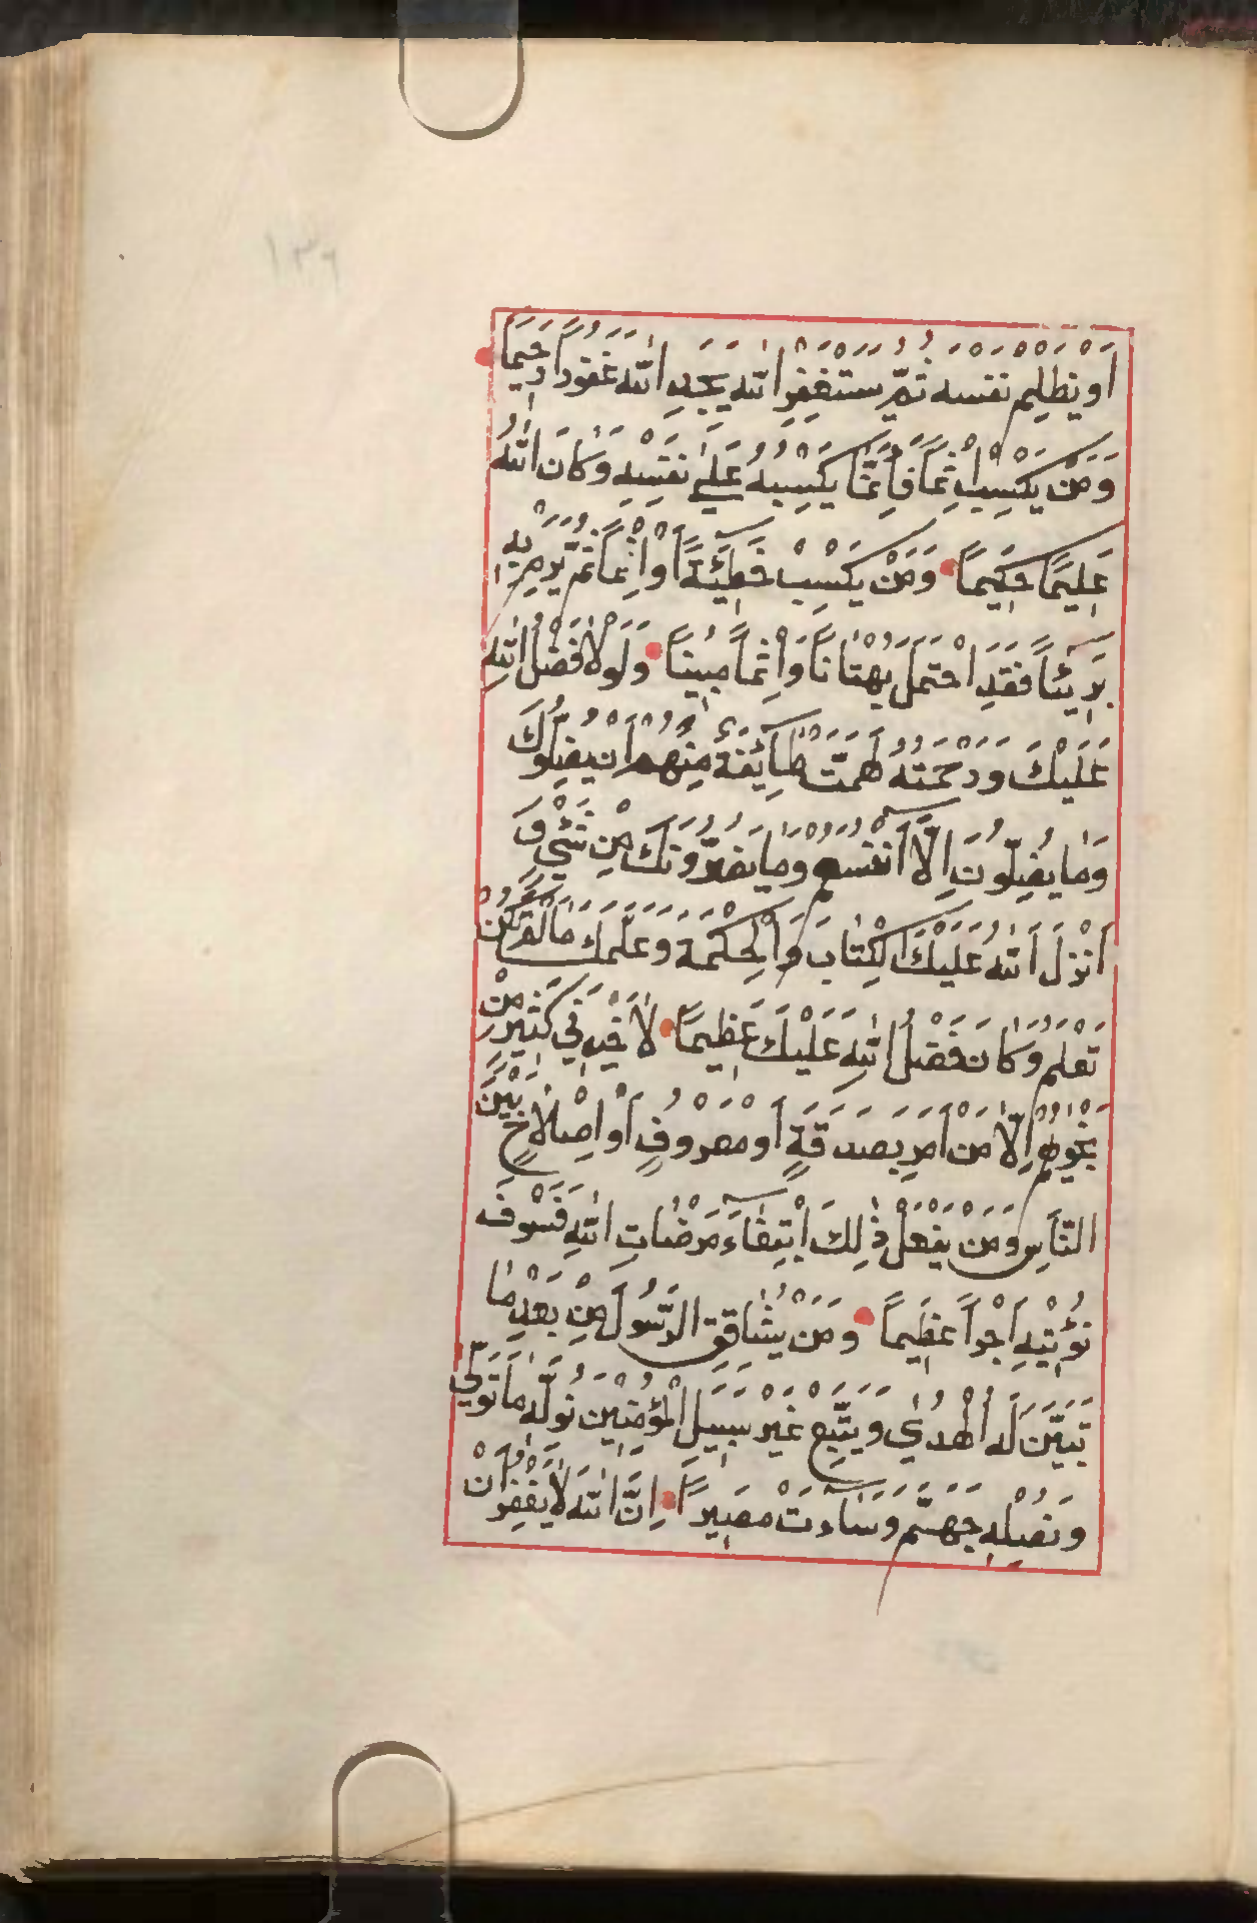 ١٣٦
اَوْ يَظْلِمْ نَفْسَهُ ثُمَّ يَسْتَغْفِرِ اللّٰهَ يَجِدِ اللّٰهَ غَفُورًا رَحِيمًا
وَمَنْ يَكْسِبْ اِثْمًا فَاِنَّمَا يَكْسِبُهُ عَلٰى نَفْسِهِ وَكَانَ اللّٰهُ
عَلِيمًا حَكِيمًا وَمَنْ يَكْسِبْ خَطِيٓئَةً اَوْ اِثْمًا ثُمَّ يَرْمِ بِهِ
بَرِيٓئًا فَقَدِ احْتَمَلَ بُهْتَانًا وَاِثْمًا مُبِينًا وَلَوْلَا فَضْلُ اللّٰهِ
عَلَيْكَ وَرَحْمَتُهُ لَهَمَّتْ طَآئِفَةٌ مِنْهُمْ اَنْ يُضِلُّوكَ
وَمَا يُضِلُّونَ اِلَّآ اَنْفُسَهُمْ وَمَا يَضُرُّونَكَ مِنْ شَيْءٍ وَ
اَنْزَلَ اللّٰهُ عَلَيْكَ الْكِتَابَ وَالْحِكْمَةَ وَعَلَّمَكَ مَا لَمْ تَكُنْ
تَعْلَمُ وَكَانَ فَضْلُ اللّٰهِ عَلَيْكَ عَظِيمًا لَا خَيْرَ فِي كَثِيرٍ مِنْ
نَجْوٰيهُمْ اِلَّا مَنْ اَمَرَ بِصَدَقَةٍ اَوْ مَعْرُوفٍ اَوْ اِصْلَاحٍ بَيْنَ
النَّاسِ وَمَنْ يَفْعَلْ ذٰلِكَ ابْتِغَآءَ مَرْضَاتِ اللّٰهِ فَسَوْفَ
نُؤْتِيهِ اَجْرًا عَظِيمًا وَمَنْ يُشَاقِقِ الرَّسُولَ مِنْ بَعْدِ مَا
تَبَيَّنَ لَهُ الْهُدٰى وَيَتَّبِعْ غَيْرَ سَبِيلِ الْمُؤْمِنِينَ نُوَلِّهِ مَا تَوَلّٰى
وَنُصْلِهِ جَهَنَّمَ وَسَآءَتْ مَصِيرًا اِنَّ اللّٰهَ لَا يَغْفِرُ اَنْ